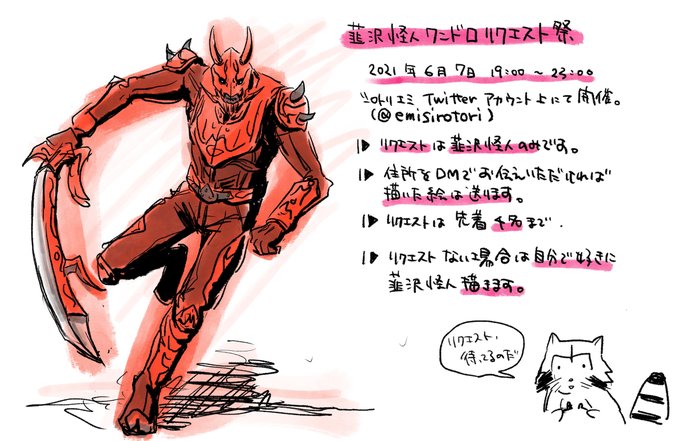 韮沢怪人ワンドロリクエスト祭
2021年6月7日 19:00～23:00
シロトリエミ Twitter アカウント上にて開催。
(@emisirotori)
リクエストは韮沢怪人のみです。
住所をDMでお伝えいただければ
描いた絵は送ります。
リクエストは先着4名まで.
リクエストない場合は自分で好きに
韮沢怪人描きます。
リクエスト、
待ってるのだ